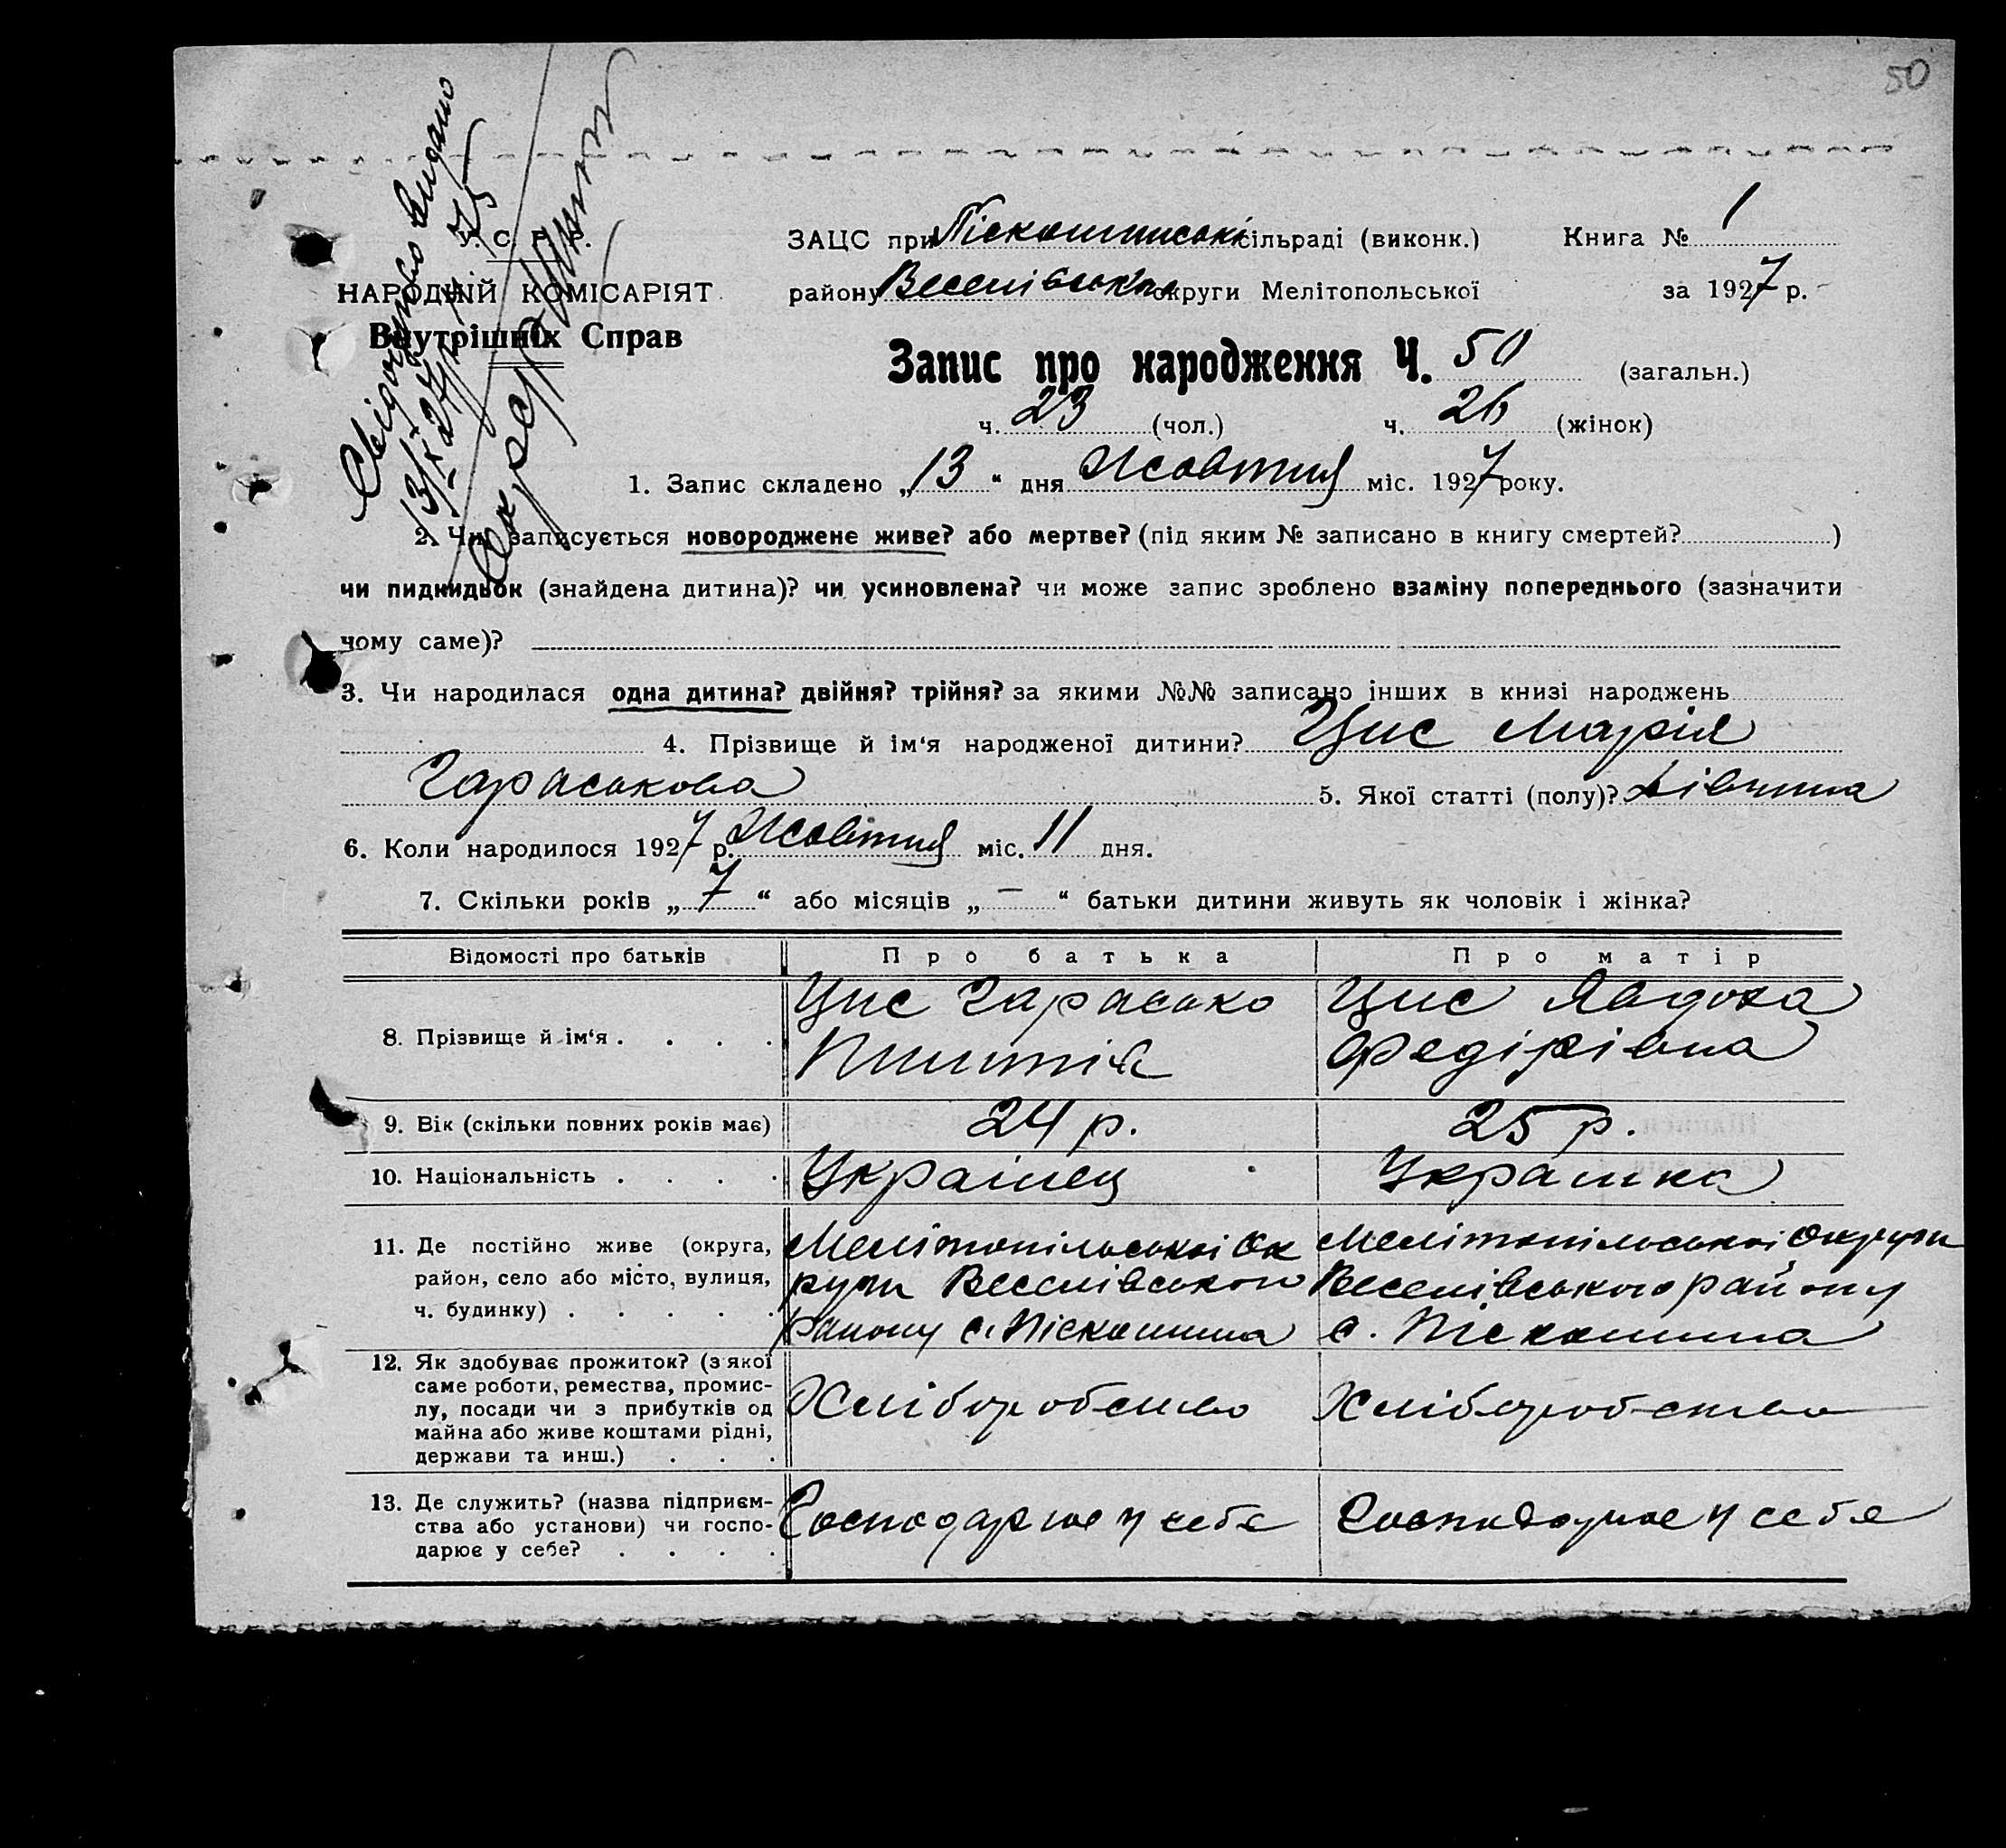 50
Свідоцтво видано
13/X 27 р. № 75
У. С. Р. Р.
НАРОДНІЙ КОМІСАРІЯТ
Внутрішніх Справ
ЗАЦС при Піскошинській сільраді (виконк.) Книга № 1
району Веселівськ округи Мелітопольської за 1927 р.
Запис про народження Ч. 50 (загальн.)
ч. 23 (чол.) ч. 26 (жінок)
1. Запис складено „13“ дня Жовтня міс. 1927 року.
2. Чи записується новороджене живе? або мертве? (під яким № записано в книгу смертей? )
чи пидкидьок (знайдена дитина)? чи усиновлена? чи може запис зроблено взаміну попереднього (зазначити
чому саме)?
3. Чи народилася одна дитина? двійня? трійня? за якими №№ записано інших в книзі народжень
4. Прізвище й ім‘я народженої дитини? Цис Марія
Гараськова 5. Якої статті (полу)? Дівчина
6. Коли народилося 1927 р. Жовтня міс. 11 дня.
7. Скільки років „7“ або місяців „—“ батьки дитини живуть як чоловік і жінка?
Відомості про батьків Про батька Про матір
8. Прізвище й ім‘я . . . . Цис Гарасько Цис Явдоха
Федірівна
9. Вік (скільки повних років має) 24 р. 25 р.
10. Національність . . . . Українец Українка
11. Де постійно живе (округа, Мелітопільської Ок Мелітопільської Округи
район, село або місто, вулиця, руги Веселівського Веселівського району
ч. будинку) . . . . . району с. Піскошина с. Піскошина
12. Як здобуває прожиток? (з якої
саме роботи, ремества, промис-
лу, посади чи з прибутків од Хліборобство Хліборобство
майна або живе коштами рідні,
держави та инш.) . . .
13. Де служить? (назва підприєм-
ства або установи) чи госпо- Господарює у себе Господарює у себе
дарює у себе? . . . .